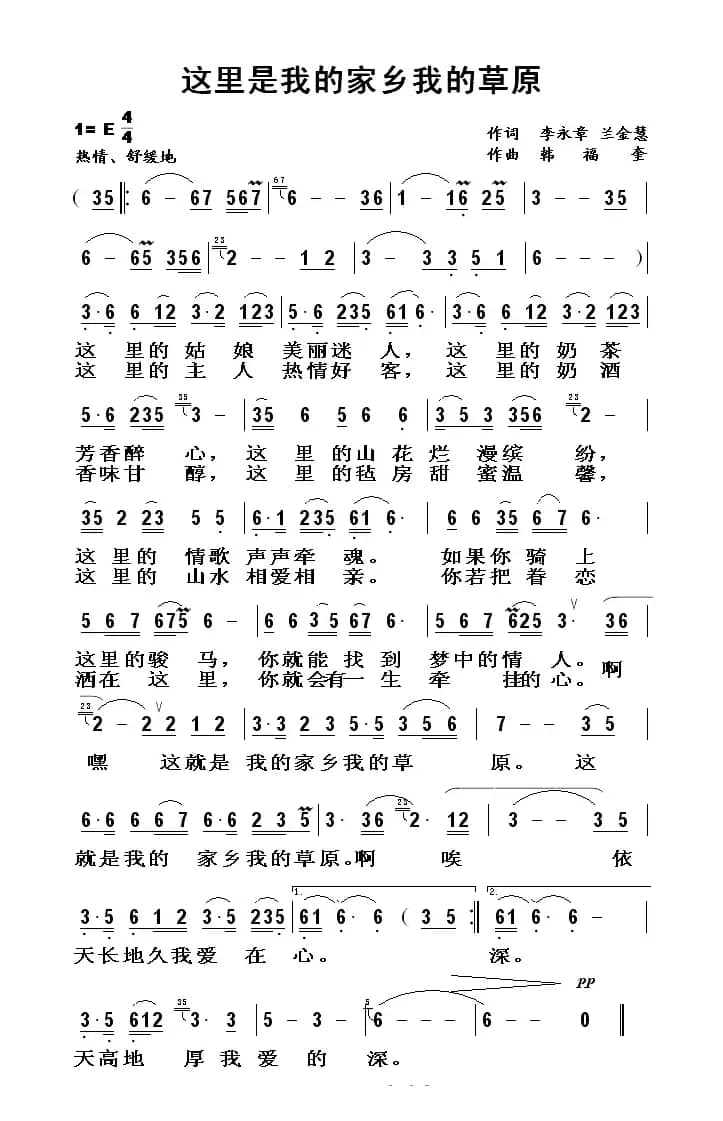 这里是我的家乡我的草原
1= E 4/4
作词 李永章 兰金慧
热情、舒缓地
作曲 韩福奎
( 35 ‖: 6 - 67 567 | 67 6 - - 36 | 1 - 16 25 | 3 - - 35 |
6 - 65 356 | 23 2 - - 12 | 3 - 33 51 | 6 - - - )
3·6 612 3·2 123 | 5·6 235 61 6· | 3·6 612 3·2 123
这里的姑娘美丽迷人，这里的奶茶
这里的主人热情好客，这里的奶酒
5·6 235 35 3 - | 35 6 56 6 | 353 356 23 2 -
芳香醉心，这里的山花烂漫缤纷，
香味甘醇，这里的毡房甜蜜温馨，
35 2 23 5 5 | 6·1 235 61 6· | 66 35 567 6·
这里的情歌声声牵魂。如果你骑上
这里的山水相爱相亲。你若把眷恋
567 675 6 - | 66 35 67 6· | 567 625 3· 36
这里的骏马，你就能找到梦中的情人。啊
洒在这里，你就会有一生牵挂的心。
23 2 - 22 12 | 3·3 23 5·5 356 | 7 - - 35
嘿 这就是 我的家乡我的草原。这
6·6 667 6·6 235 | 3· 36 23 2· 12 | 3 - - 35
就是我的 家乡我的草原。啊 唉 依
3·5 612 3·5 235 | 1. 61 6· 6 ( 35 :‖ 2. 61 6· 6 -
天长地久我爱在心。 深。
pp
3·5 612 35 3· 3 | 5 - 3 - | 5 6 - - - | 6 - - 0 ‖
天高地厚我爱的深。